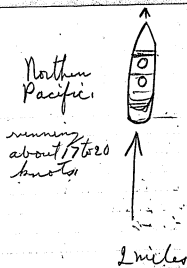 Northern
Pacific.
running
about 17 to 20
knots
2 miles